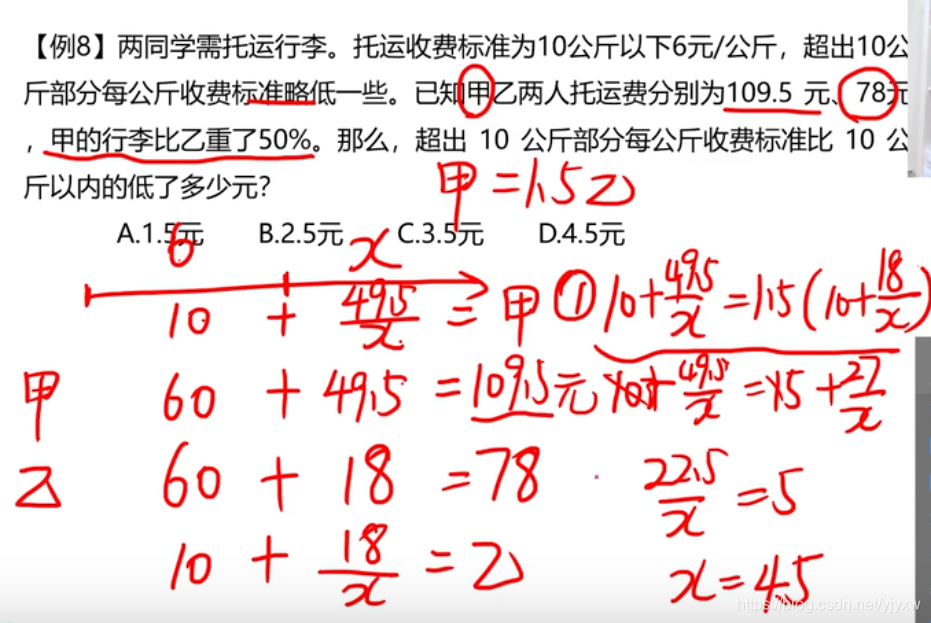 【例8】两同学需托运行李。托运收费标准为10公斤以下6元/公斤，超出10公
斤部分每公斤收费标准略低一些。已知甲乙两人托运费分别为109.5 元、78元
，甲的行李比乙重了50%。那么，超出 10 公斤部分每公斤收费标准比 10 公
斤以内的低了多少元？
甲=1.5乙
A.1.5元 B.2.5元 C.3.5元 D.4.5元
6 x
10 + 49.5/x = 甲 ① 10+49.5/x=1.5(10+18/x)
甲 60 + 49.5 = 109.5元 10+49.5/x=15+27/x
乙 60 + 18 = 78 22.5/x=5
10 + 18/x = 乙 x=4.5
https://blog.csdn.net/yjyxw